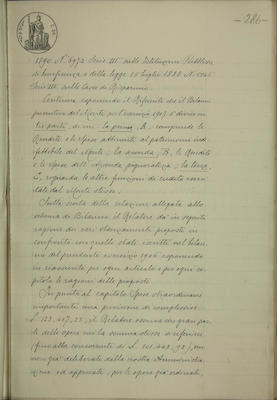 - 286 -
1890 N. 6972 Serie III sulle Istituzioni Pubbliche
di beneficenza e della legge 15 Luglio 1888 N. 5546
Serie III sulle Casse di Risparmio.
Continua esponendo il Riferente che il Bilancio
preventivo del Monte per l'esercizio 1907 è diviso in
tre parti, di cui: la prima, A, comprende le
Rendite e le spese attinenti al patrimonio
del Monte, la seconda, B, le Rendite
e le spese dell'Azienda pignoratizia; la terza,
C, riguarda le altre funzioni di credito
dal Monte stesso.
Sulla scorta della relazione allegata allo
schema di Bilancio il Relatore dà in seguito
ragione dei vari stanziamenti proposti in
confronto con quelli state iscritti nel bilan
cio del precedente esercizio 1906 esponendo
in riassunto per ogni articolo e per ogni ca
pitolo le ragioni delle proposte.
In punto al capitolo Spese straordinarie
importanti una previsione di complessive
L. 123.407,25, il Relatore osserva che gran par
te delle spese cui la somma stessa si riferisce
(fino alla concorrenza di L.
già deliberate dalla nostra Amministra
zione ed approvate, per le spese già ordinate,